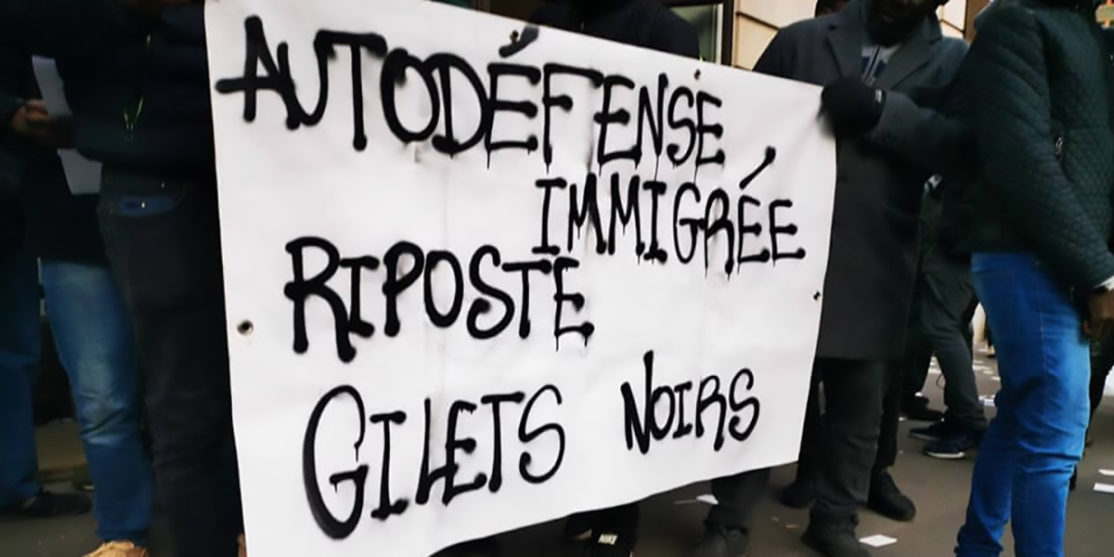 AUTODÉFENSE
IMMIGRÉE
RIPOSTE
GILETS NOIRS
NIKE